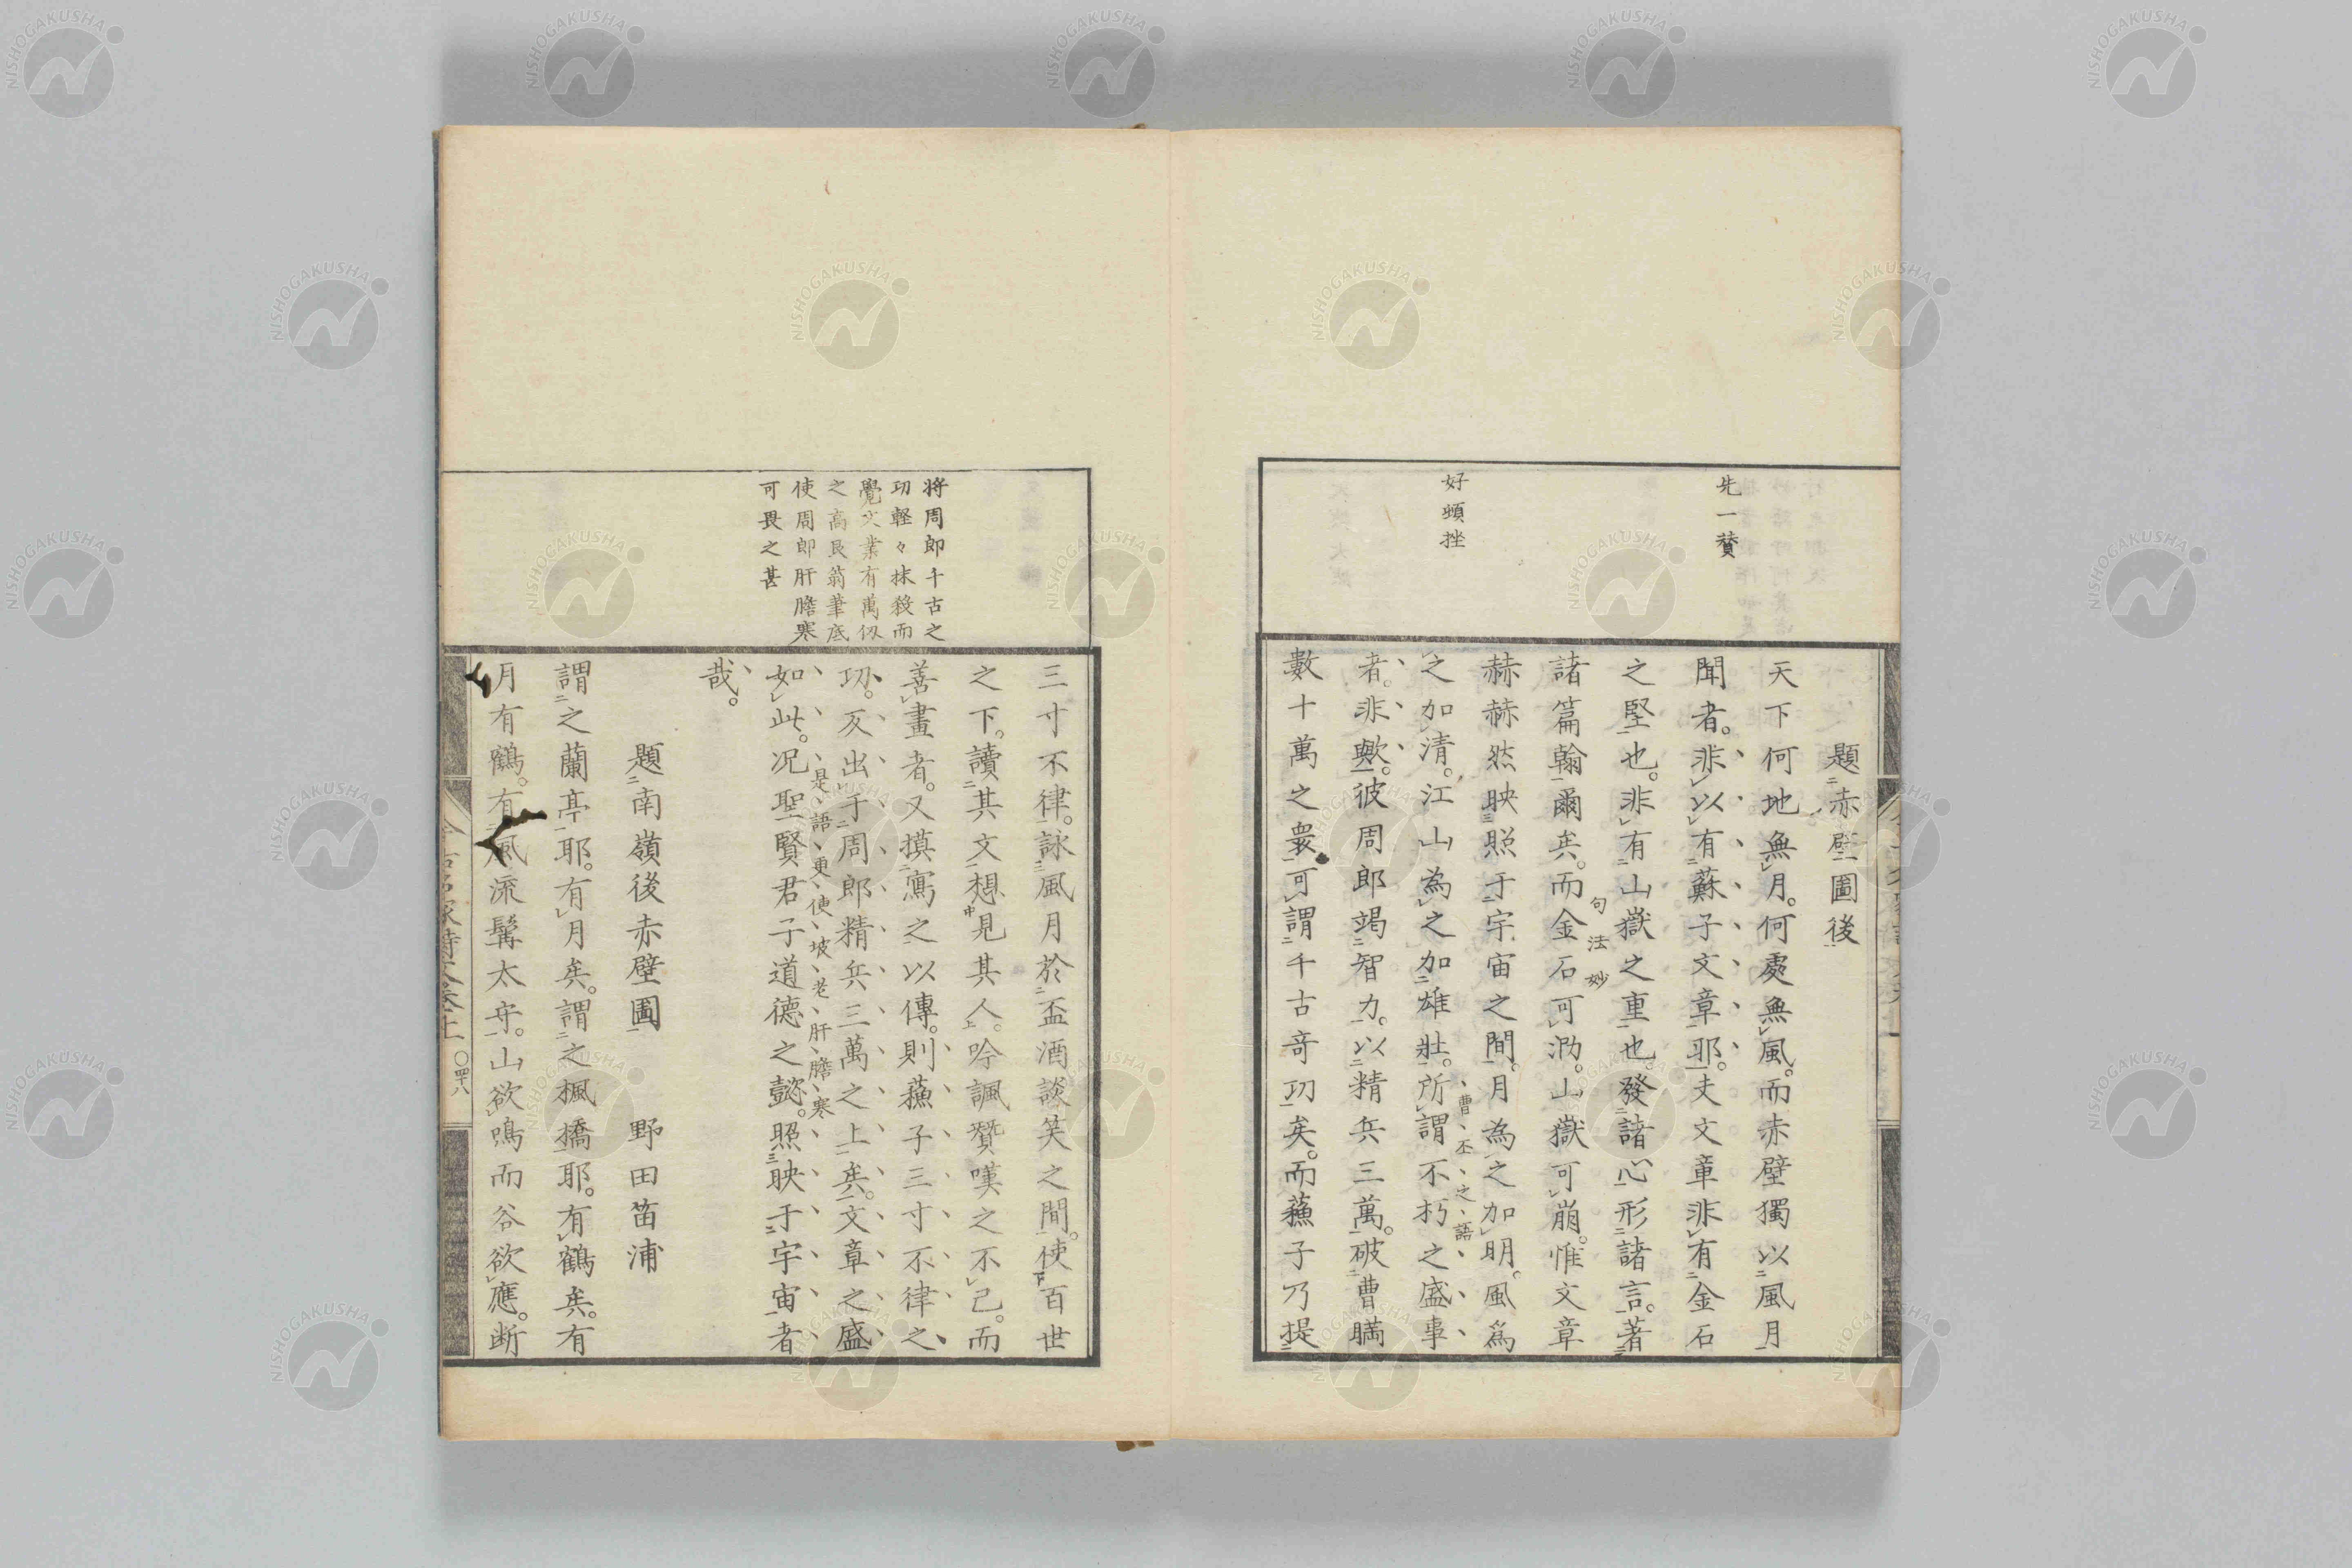 題赤壁圖後
天下何地無月。何處無風。而赤壁獨以風月
聞者。非以有蘇子文章耶。夫文章非有金石
之堅也。非有山嶽之重也。發諸心形諸言。著
諸篇翰爾矣。而金石可泐。山嶽可崩。惟文章
赫赫然映照于宇宙之間。月為之加明。風爲
之加清。江山為之加雄壯。所謂不朽之盛事
者。非歟。彼周郎竭智力。以精兵三萬。破曹瞞
數十萬之衆。可謂千古奇功矣。而蘓子乃提
先一賛
好頓挫
句法妙
曹丕之語
三寸不律。詠風月於盃酒談笑之間。使百世
之下。讀其文想見其人。吟諷贊嘆之不已。而
善畫者。又摸寫之以傳。則蘓子三寸不律之
功。反出于周郎精兵三萬之上矣。文章之盛
如此。况聖賢君子道德之懿。照映于宇宙者
哉。
是語更使坡老肝膽寒
将周郎千古之
功軽々抹殺而
覺文業有萬仭
之高艮翁筆底
使周郎肝膽寒
可畏之甚
題南嶺後赤壁圖 野田笛浦
謂之蘭亭耶。有月矣。謂之楓橋耶。有鶴矣。有
月有鶴。有風流髯太守。山欲鳴而谷欲應。断
〇四十八
NISHOGAKUSHA